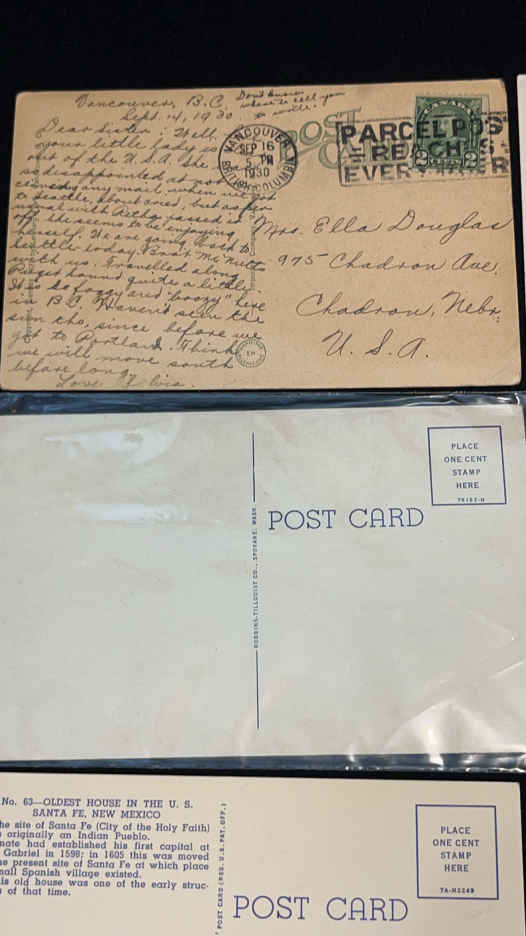 Vancouver, B.C.
Sept. 14, 1930.
Don't know
where to tell you
to write.
Dear Sister: Well,
your little lady is
out of the U.S.A. She
so disappointed at not
any mail, when we got
to Seattle, about cried, but as
usual with passed it
off. She seems to be enjoying
herself. We are going back to
Seattle today. Brot Mc
with us. Travelled along
Puget Sound quite a little.
It is so foggy and "boozy" here
in B.C. Haven't seen the
sun tho, since before we
got to Portland. Think
we will move south
before long.
Love
POST
VANCOUVER
SEP 16
5 PM
1930
BRITISH COLUMBIA
CANADA
2 2
PARCEL POS
REACHES
EVERY
Mrs. Ella Douglas
975 Chadron Ave.
Chadron, Nebr.
U. S. A.
PLACE
ONE CENT
STAMP
HERE
POST CARD
ROBBINS-TILLQUIST CO., SPOKANE, WASH.
No. 63—OLDEST HOUSE IN THE U. S.
SANTA FE, NEW MEXICO
he site of Santa Fe (City of the Holy Faith)
originally an Indian Pueblo.
nate had established his first capital at
Gabriel in 1598; in 1605 this was moved
he present site of Santa Fe at which place
mall Spanish village existed.
is old house was one of the early struc-
of that time.
POST CARD (REG. U. S. PAT. OFF.)
PLACE
ONE CENT
STAMP
HERE
7A-H3249
POST CARD